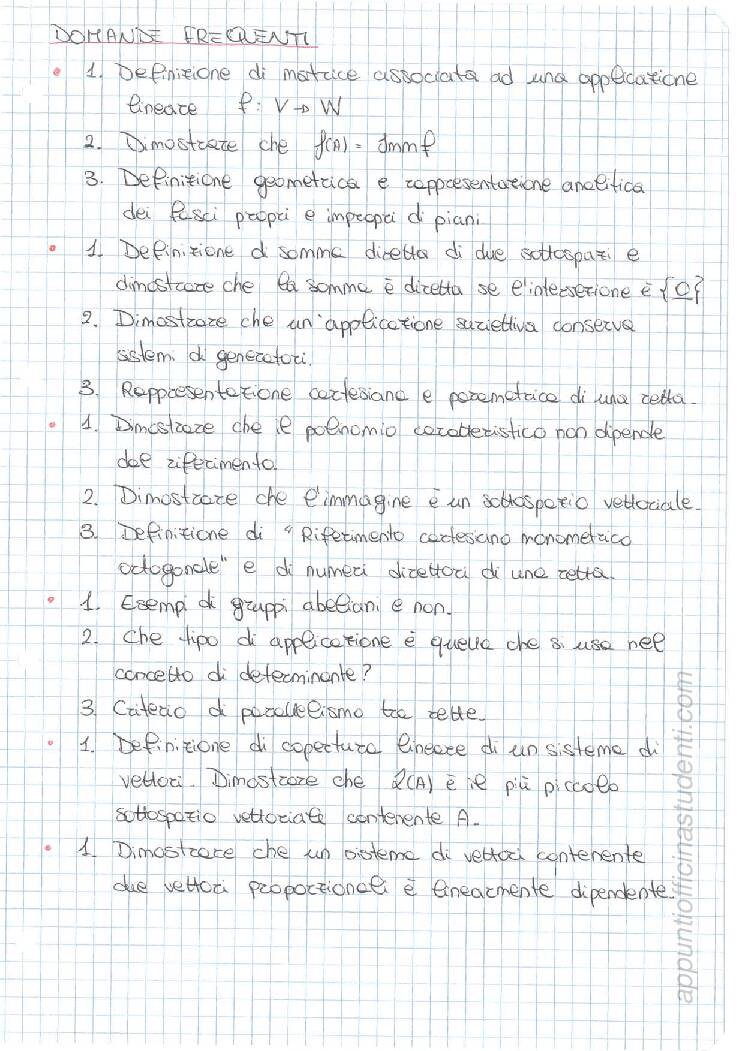 DOMANDE FREQUENTI
1. Definizione di matrice associata ad una applicazione
lineare f: V → W
2. Dimostrare che f(A) = Immf
3. Definizione geometrica e rappresentazione analitica
dei fasci propri e impropri di piani
1. Definizione di somma diretta di due sottospazi e
dimostrare che la somma è diretta se l'intersezione è {0}
2. Dimostrare che un'applicazione suriettiva conserva
sistemi di generatori.
3. Rappresentazione cartesiana e parametrica di una retta.
1. Dimostrare che il polinomio caratteristico non dipende
dal riferimento.
2. Dimostrare che l'immagine è un sottospazio vettoriale.
3. Definizione di "Riferimento cartesiano monometrico
ortogonale" e di numeri direttori di una retta.
1. Esempi di gruppi abeliani e non.
2. Che tipo di applicazione è quella che si usa nel
concetto di determinante?
3. Criterio di parallelismo tra rette.
1. Definizione di copertura lineare di un sistema di
vettori. Dimostrare che L(A) è il più piccolo
sottospazio vettoriale contenente A.
1. Dimostrare che un sistema di vettori contenente
due vettori proporzionali è linearmente dipendente.
appuntiofficinastudenti.com